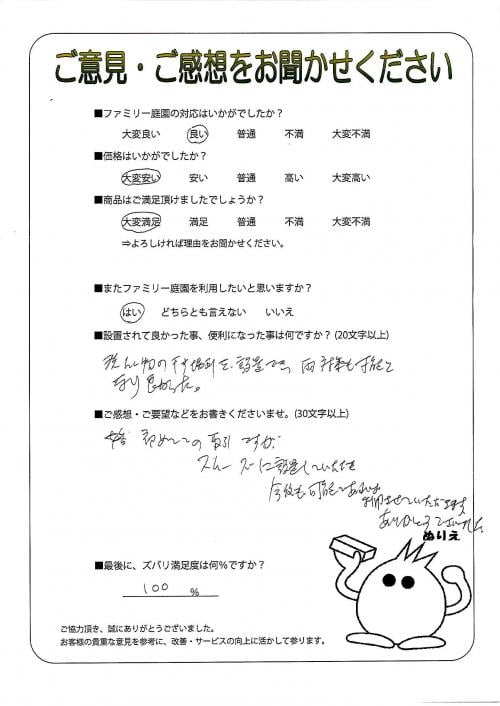 ご意見・ご感想をお聞かせください
■ファミリー庭園の対応はいかがでしたか？
大変良い 良い 普通 不満 大変不満
■価格はいかがでしたか？
大変安い 安い 普通 高い 大変高い
■商品はご満足頂けましたでしょうか？
大変満足 満足 普通 不満 大変不満
⇒よろしければ理由をお聞かせください。
■またファミリー庭園を利用したいと思いますか？
はい どちらとも言えない いいえ
■設置されて良かった事、便利になった事は何ですか？(20文字以上)
洗たく物の干す場所を設置でき、雨対策も可能と
なり良かった。
■ご感想・ご要望などをお書きくださいませ。(30文字以上)
初めての取引ですが
スムーズに設置していただき
今後も可能であれば
利用させていただきます
ありがとうございました
ぬりえ
■最後に、ズバリ満足度は何％ですか？
100 %
ご協力頂き、誠にありがとうございました。
お客様の貴重な意見を参考に、改善・サービスの向上に活かして参ります。